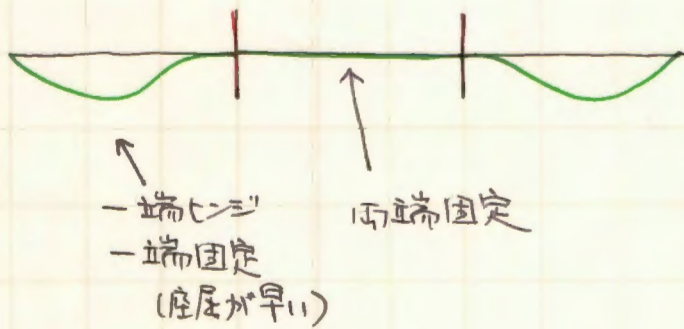 一端ヒンジ
一端固定
(座屈が早い)
両端固定